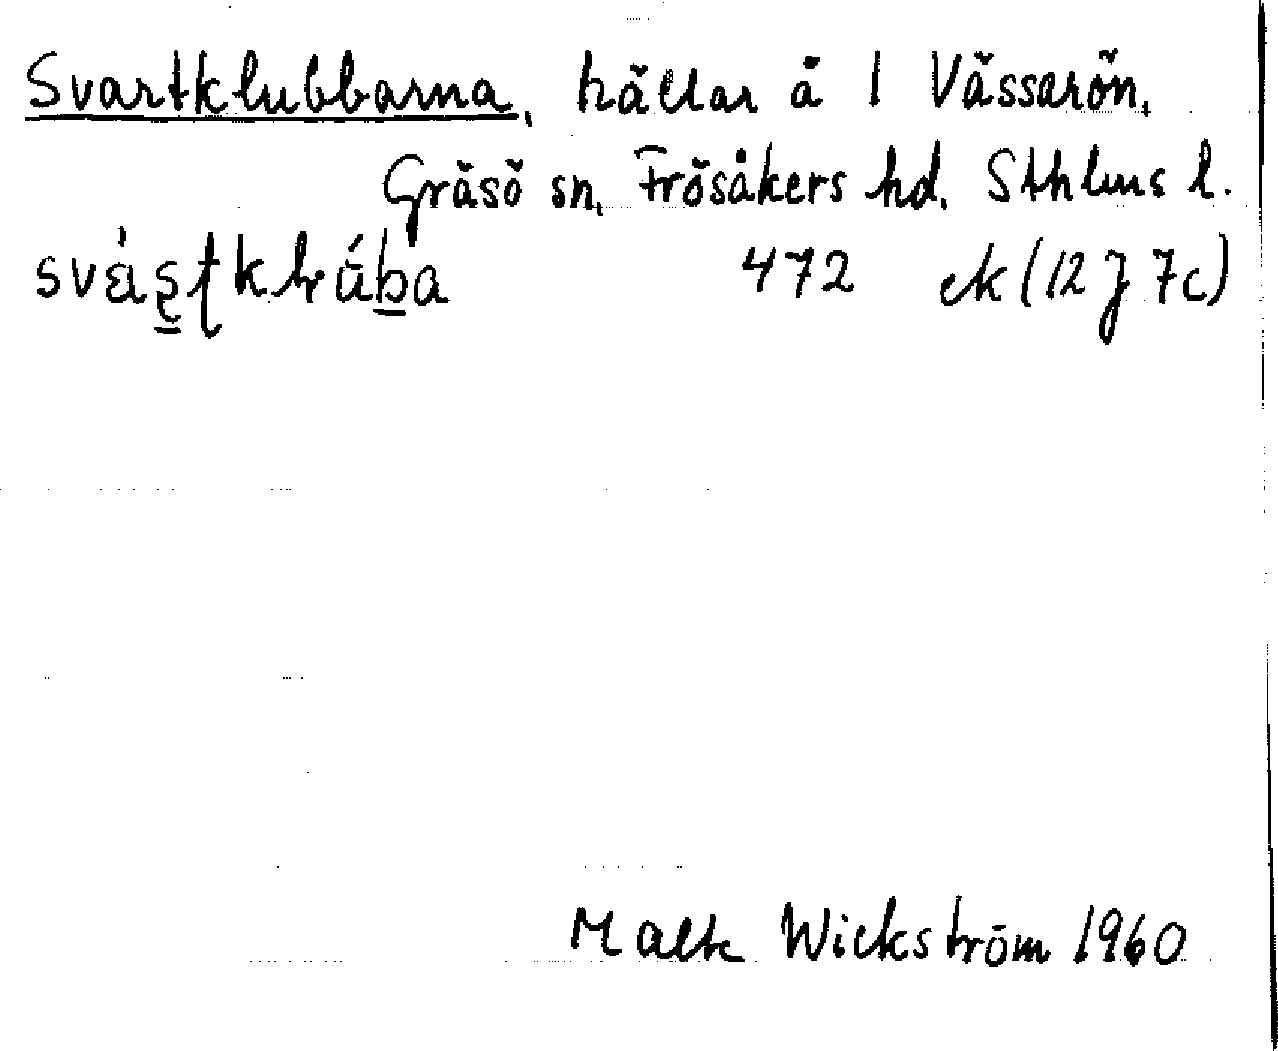 Svartklubbarna, hällar å l Vässarön,
Gräsö sn, Frösåkers hd. Sthlms l.
472 ek (12 J 7c)
Malte Wickström 1960